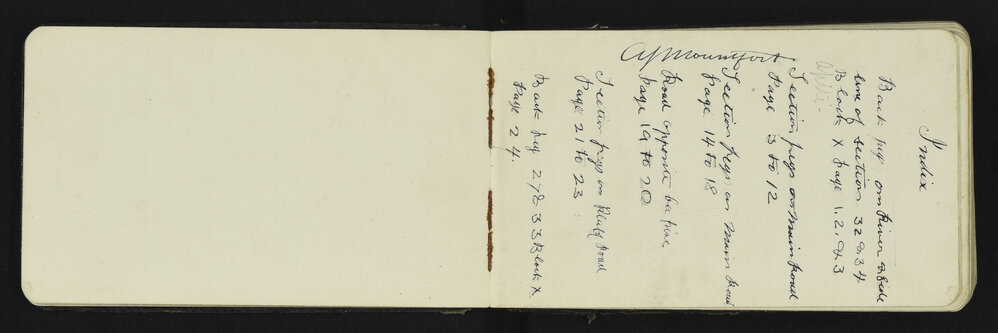 Index
Back pegs on River & side
line of section 32 & 34
Block X page 1. 2. & 3
Section pegs on main Road
Page 3 to 12
Section pegs on Main Road
Page 14 to 18
Road opposite
Page 19 to 20
Section pegs on Bluff Road
Page 21 to 23
Back peg 33 Block X
Page 24.
Mountfort